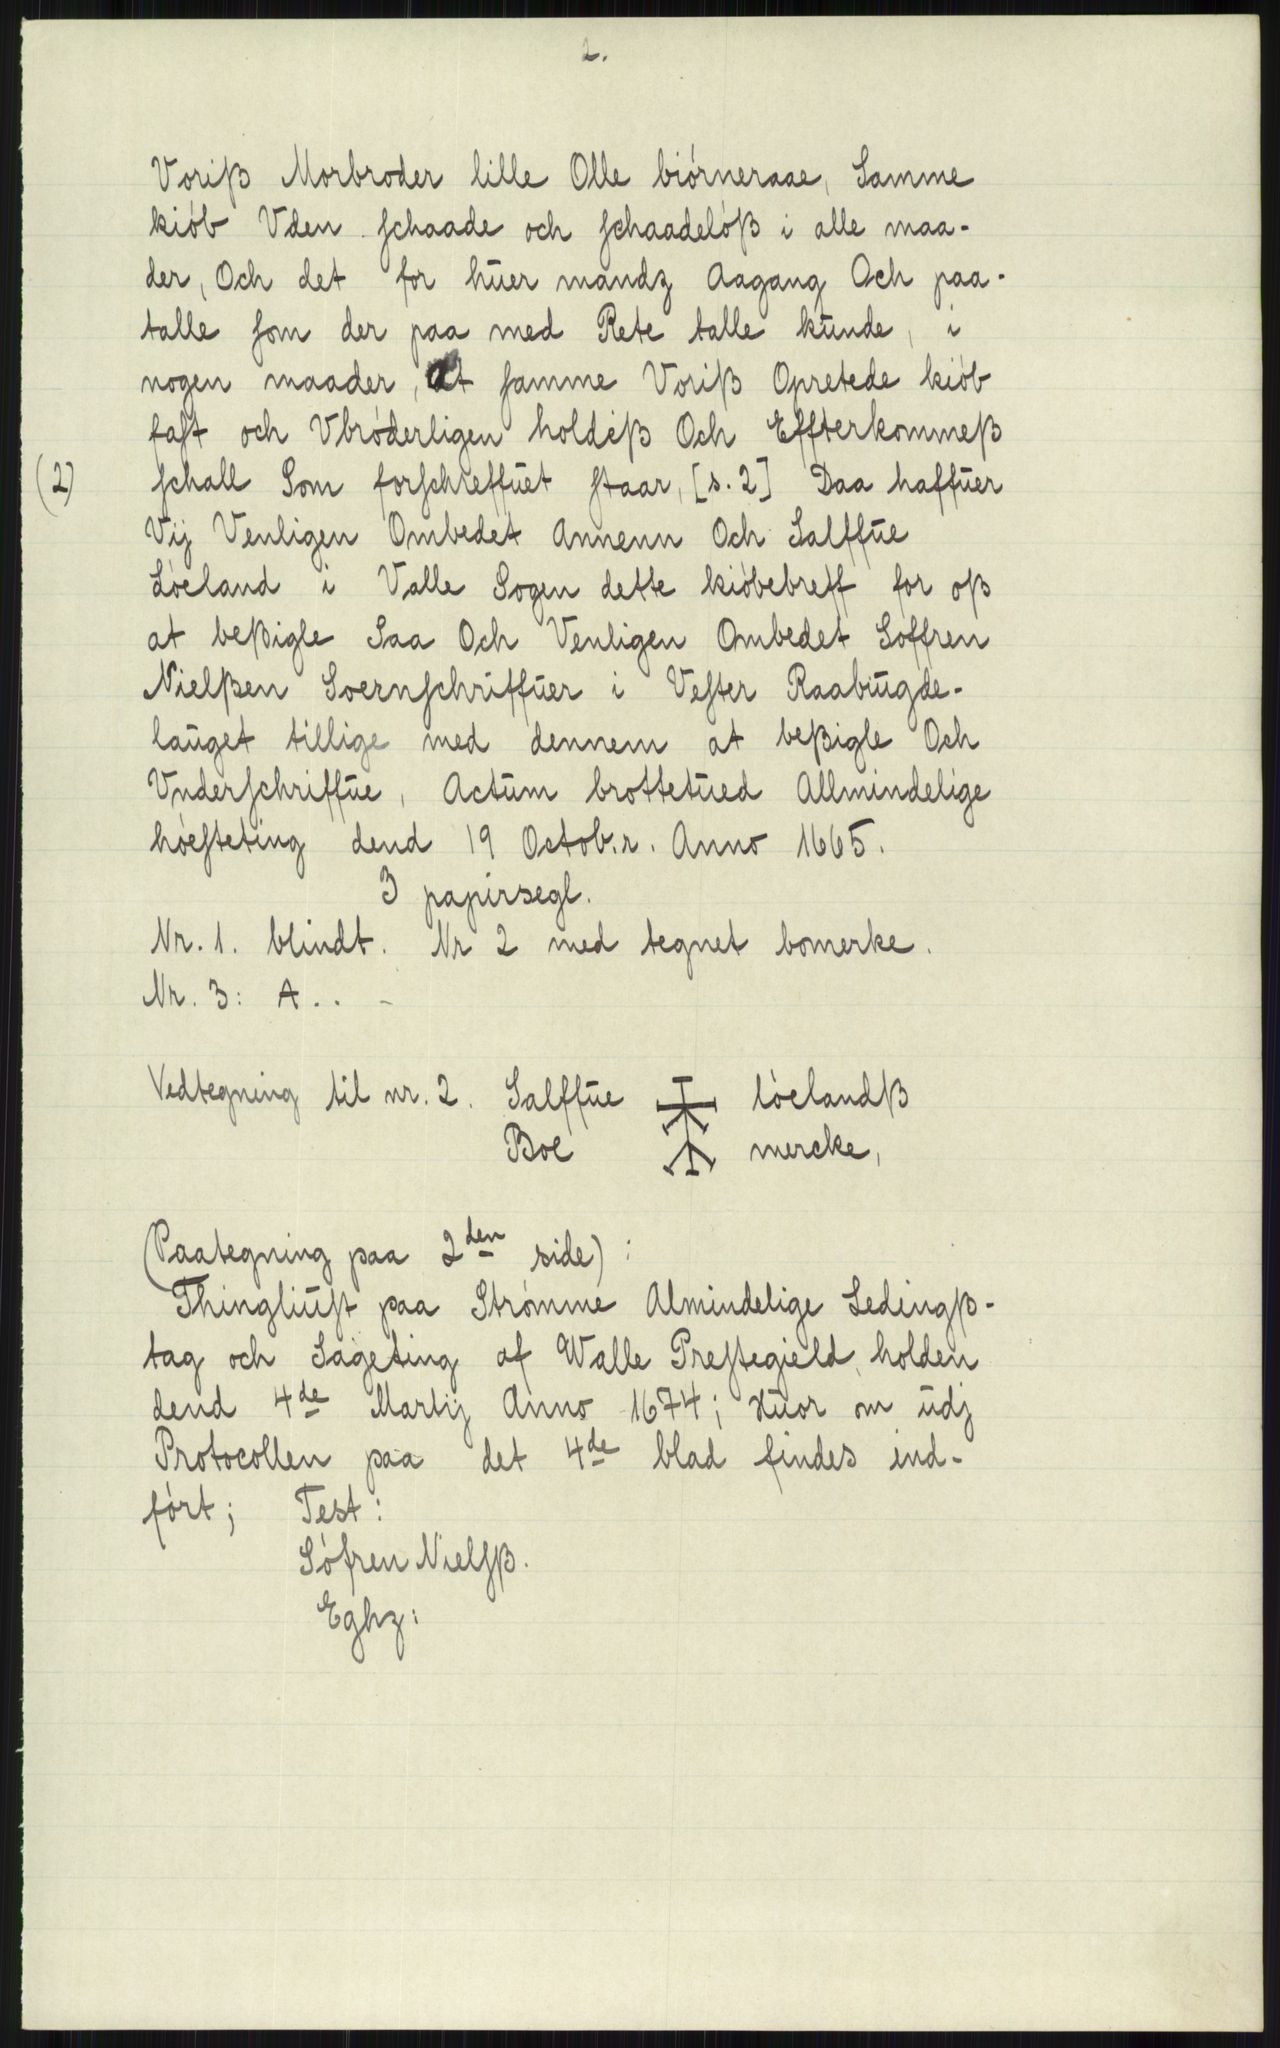 2.
Voriß Morbroder lille Olle biórneraae, Samme
kiób Vden schaade och schaadelóß i alle maa-
der, Och det for huer mandz Aagang Och paa-
talle som der paa med Rete talle kunde, i
nogen maader, at samme Voriß Opretede kiób
fast och Vbróderligen holdeß Och Effterkommeß
(2) schall Som forschreffuet staar, [s. 2] Daa haffuer
Vij Venligen Ombedet Annenn Och Salffue
Lóeland i Valle Sogen dette kióbebreff for oß
at beßigle Saa Och Venligen Ombedet Sóffren
Nielßen Soernschriffuer i Vester Raabugde-
lauget tillige med dennem at beßigle Och
Vnderschriffue, Actum brottetued Allmindelige
hóesteting dend 19 Octob.r. Anno 1665.
3 papirsegl.
Nr. 1. blindt. Nr 2 med tegnet bomerke.
Nr. 3: A . . -
Vedtegning til nr. 2. Salffue lóelandß
Boe mercke,
(Paategning paa 2den side) :
Thingliust paa Strómme Almindelige Ledingß-
tag och Sageting af Walle Prestegield, holden
dend 4de Martij Anno 1674; Huor om udj
Protocollen paa det 4de blad findes ind-
fórt; Test:
Sófren Nielsß.
Eghz: